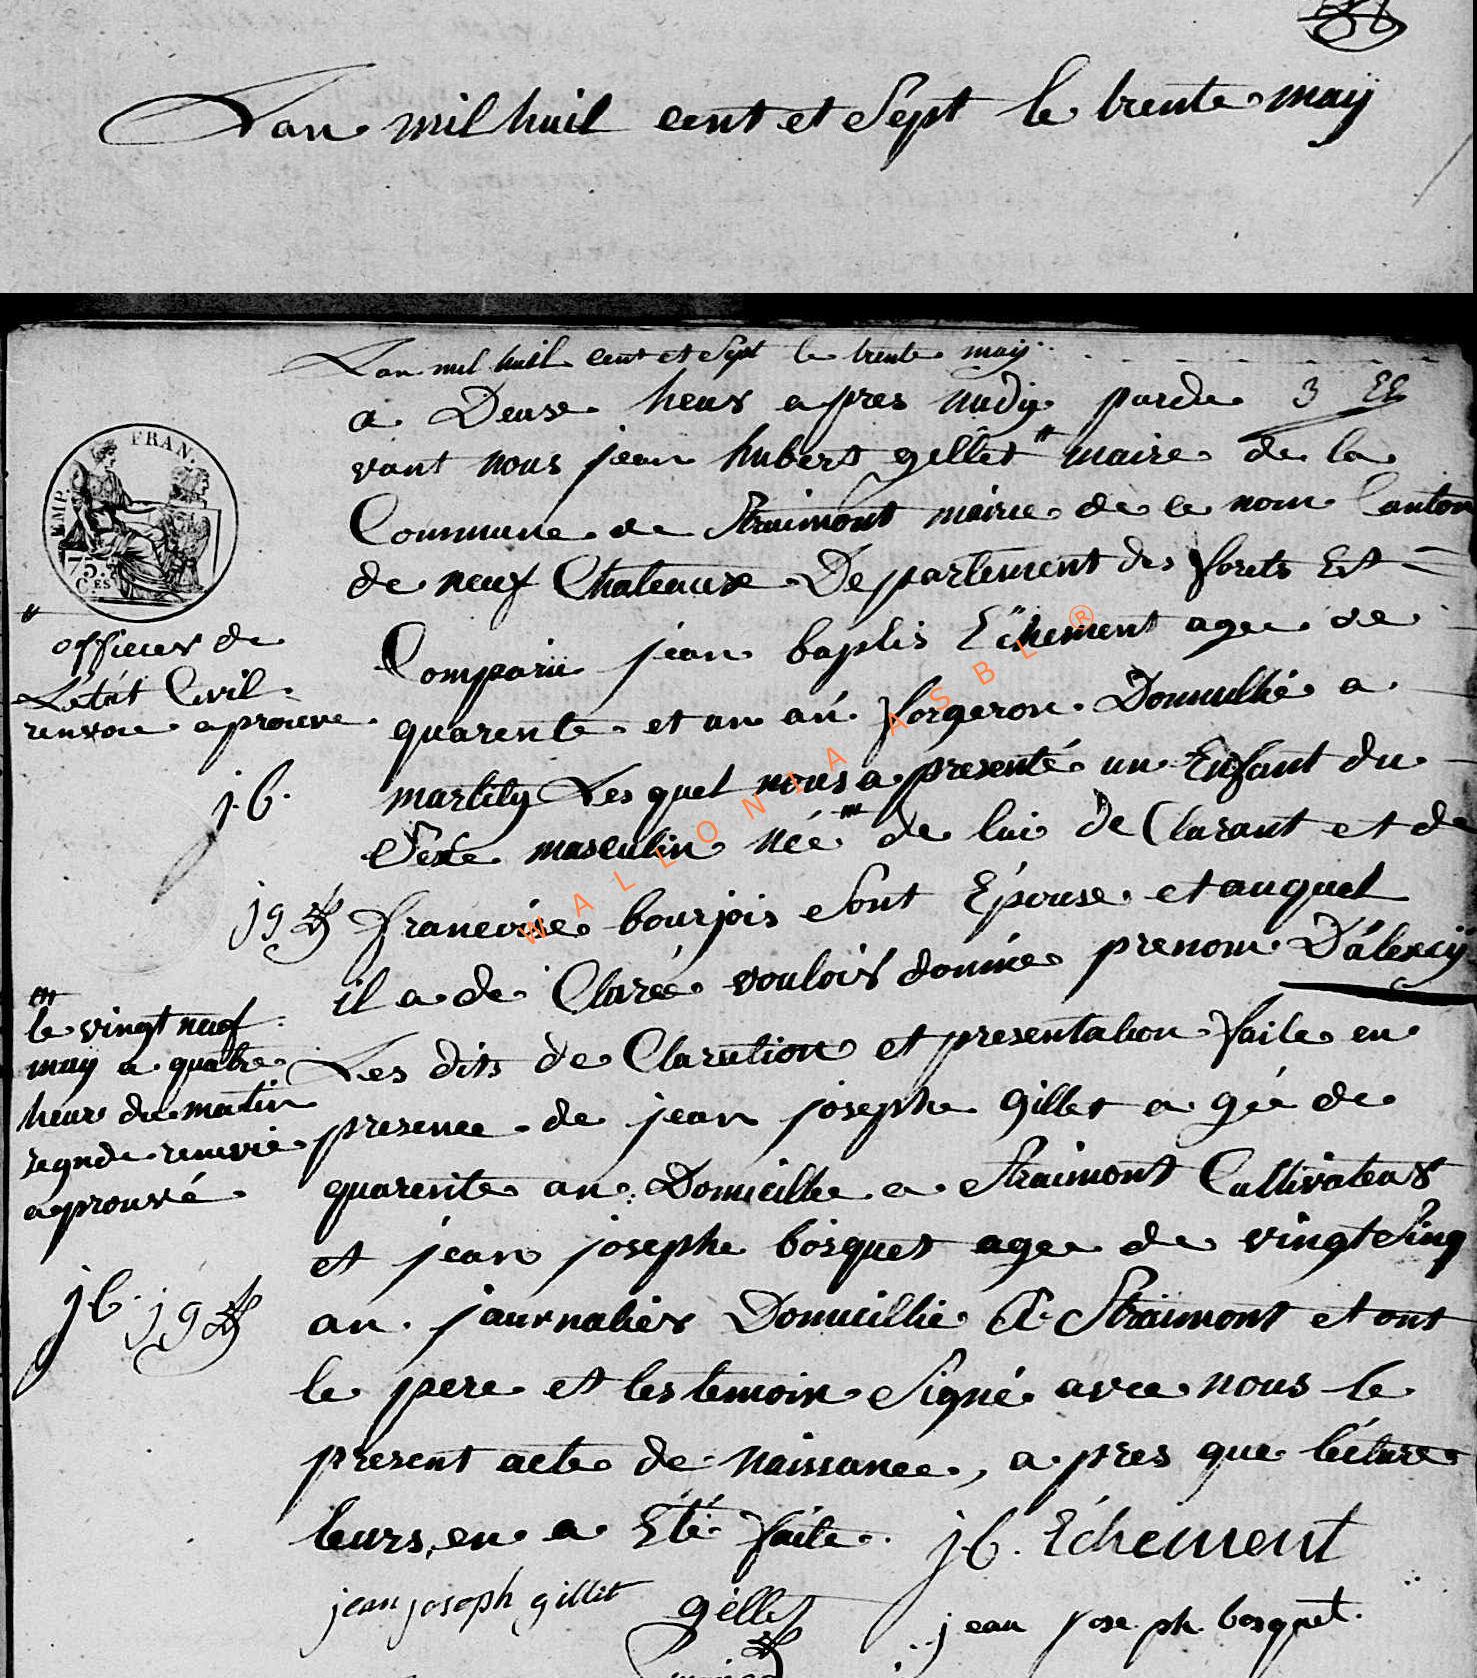 Lan mil huit cent et Sept le trente maÿ
Lan mil huit cent et Sept le trente maÿ
a Deuxe heur apres midÿ parde 3 EE
vant nous jean hubert gillet " maire de la
Commune de Straimont mairie de ce nom Canton
de neuf Chateaux Departement des forets Est
Comparu jean baptis Echement agee de
quarente et un an forgeron Domicillié a
martilÿ Lesquel nous a presenté un Enfant du
Sexe masculin née ''' de lui de Clarant et de
francoise bourjois Sont Epouse et auquel
il a de Claree vouloir donnée prenom D'alexÿ
Les dits de Claration et presentation faite en
presence de jean josephe gillet a gée de
quarente an Domicillie a Straimont Cultivateur
et jean josephe bosquet agee de vingt Sinq
an journalier Domicillie A Straimont et ont
le pere et les temoin Signé avec nous le
present acte de naissance, a pres que lecture
leurs en a Eté faite
FRAN.
EMP.
75
C.ES
"
officier de
L'etat Civil
renvoie aprouve
j.b.
jg
'''
le vingt neuf
maÿ a quatre
heur du matin
segnde renvoie
aprouvé
jb. jg
jb. Echement
jean joseph gillet
gillet
jean joseph bosquet
WALLONIA ASBL ®